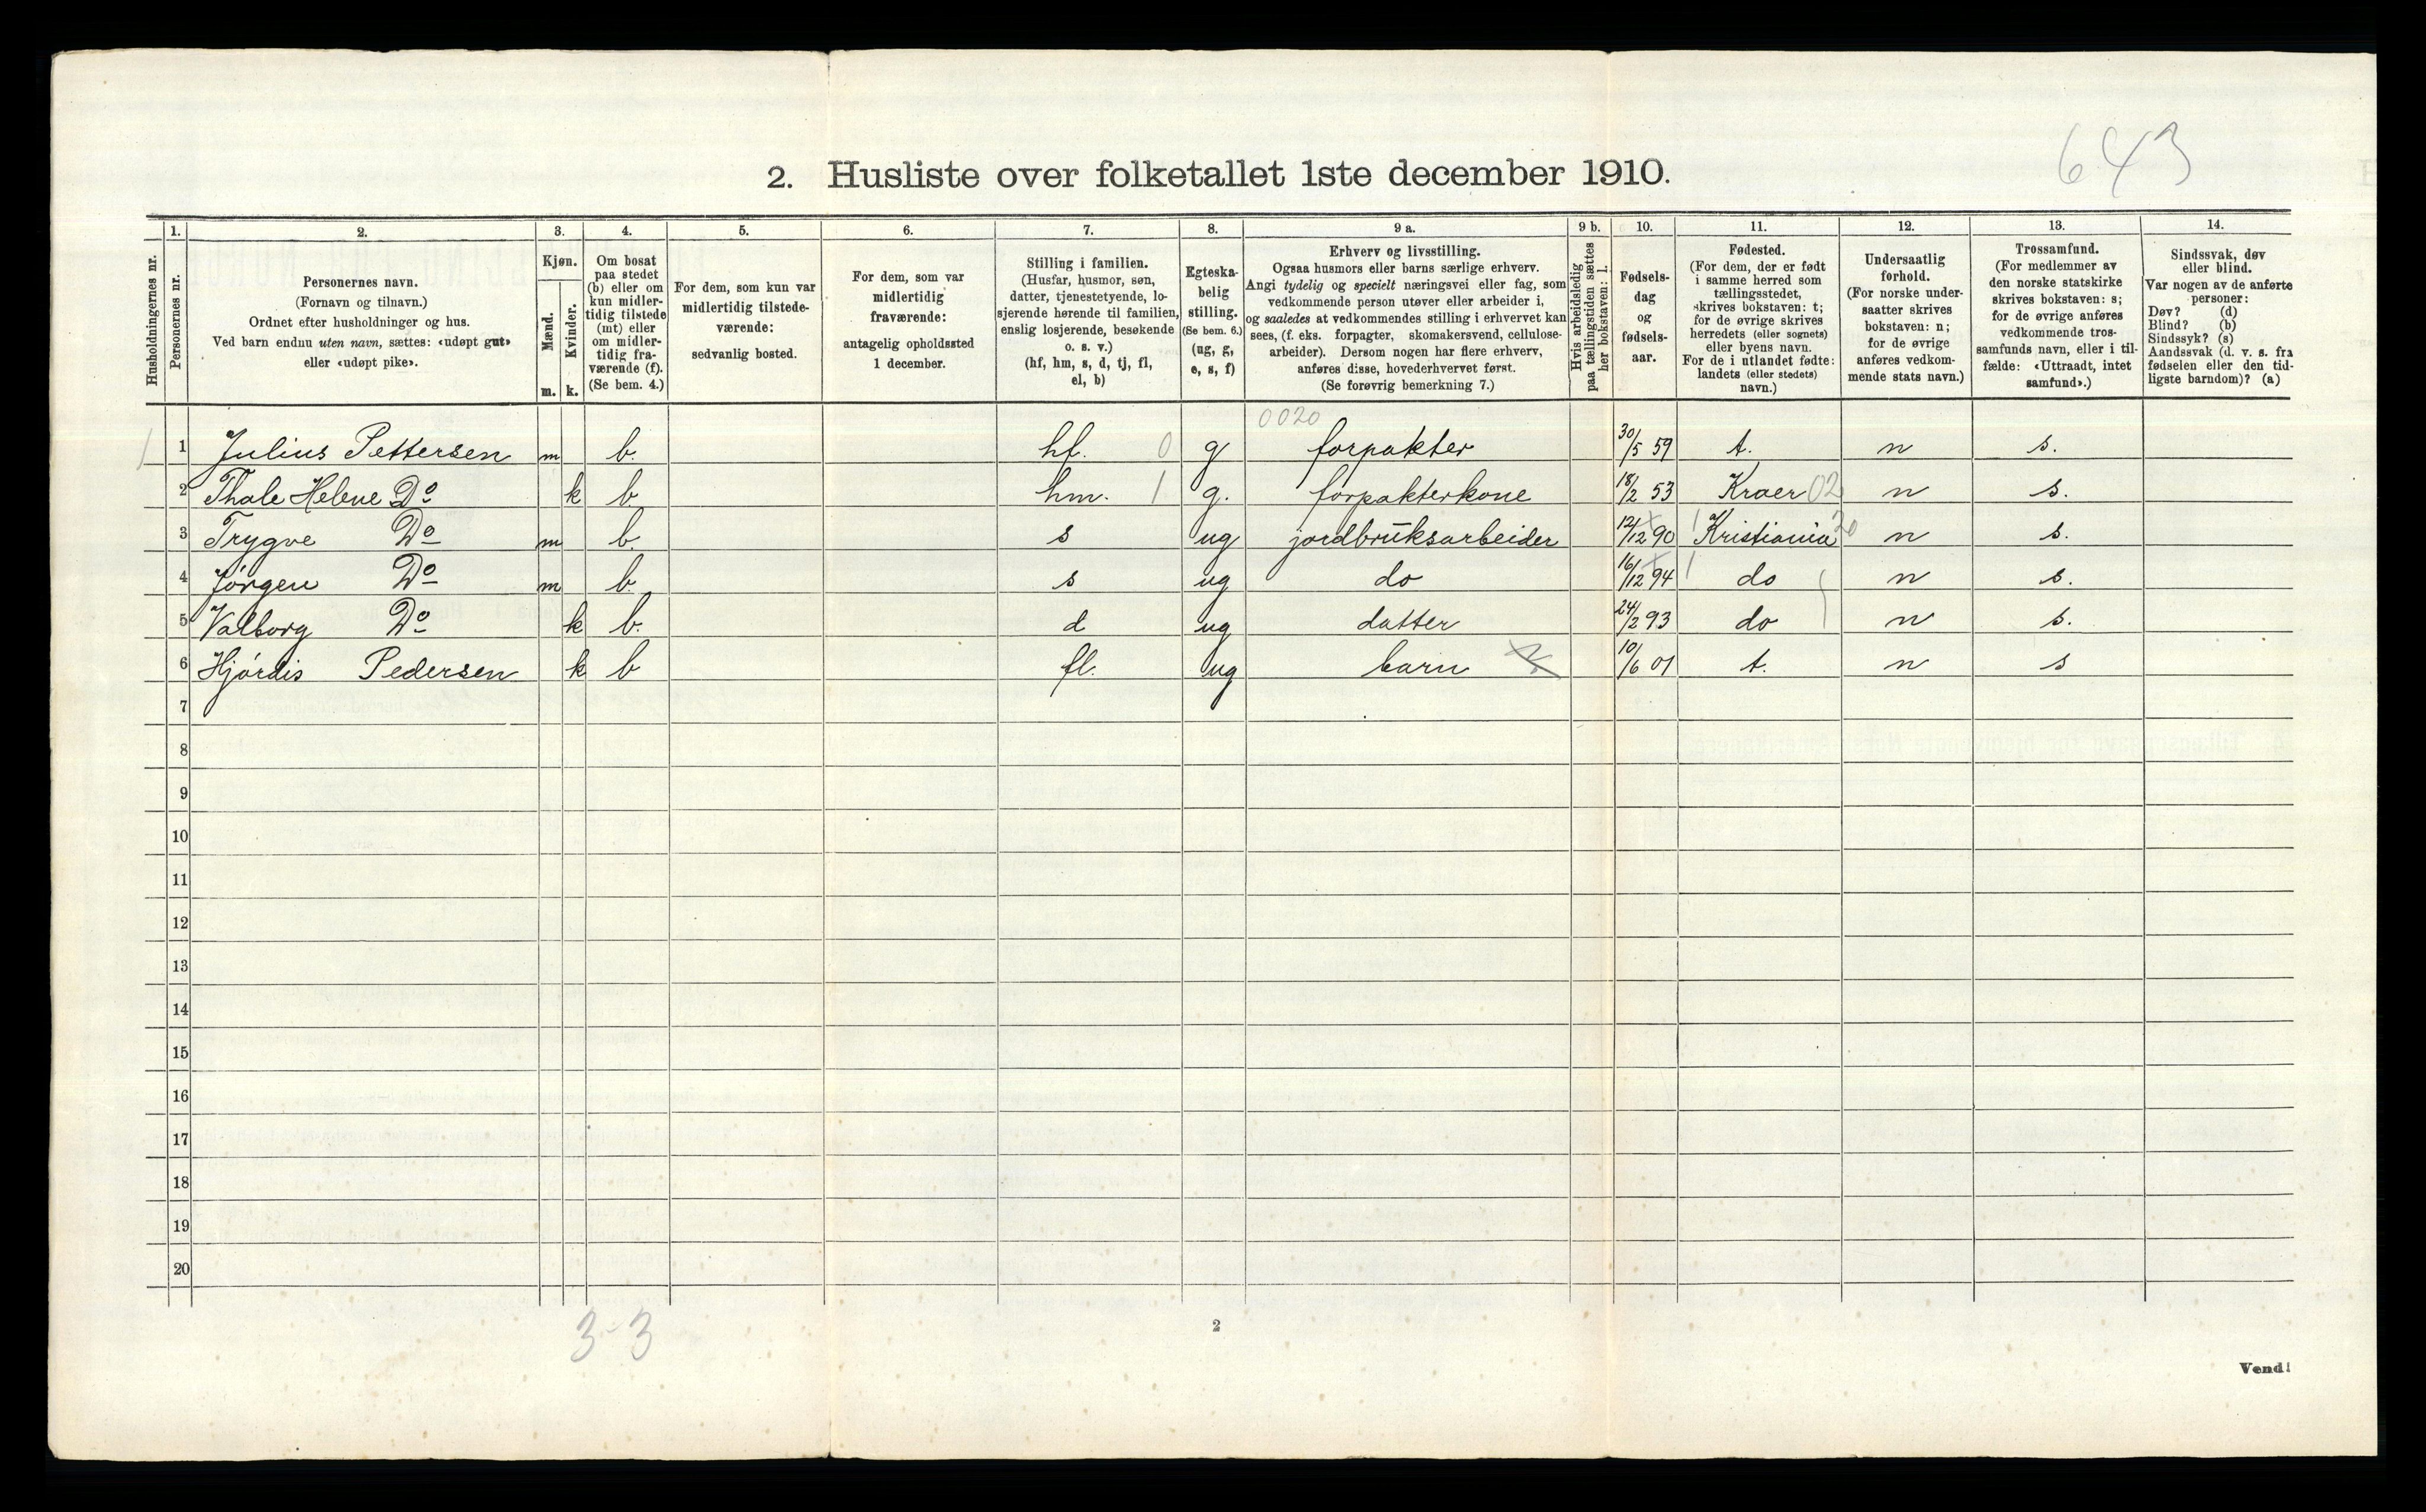 643
2. Husliste over folketallet 1ste december 1910.
Husholdningernes nr.
1.
Personernes nr.
2.
Personernes navn.
(Fornavn og tilnavn.)
Ordnet efter husholdninger og hus.
Ved barn endnu uten navn, sættes: «udøpt gut»
eller «udøpt pike».
3.
Kjøn.
Mænd.
m.
Kvinder.
k.
4.
Om bosat
paa stedet
(b) eller om
kun midler-
tidig tilstede
(mt) eller
om midler-
tidig fra-
værende (f).
(Se bem. 4.)
5.
For dem, som kun var
midlertidig tilstede-
værende:
sedvanlig bosted.
6.
For dem, som var
midlertidig
fraværende:
antagelig opholdssted
1 december.
7.
Stilling i familien.
(Husfar, husmor, søn,
datter, tjenestetyende, lo-
sjerende hørende til familien,
enslig losjerende, besøkende
o. s. v.)
(hf, hm, s, d, tj, fl,
el, b)
8.
Egteska-
belig
stilling.
(Se bem. 6.)
(ug, g,
e, s, f)
9 a.
Erhverv og livsstilling.
Ogsaa husmors eller barns særlige erhverv.
Angi tydelig og specielt næringsvei eller fag, som
vedkommende person utøver eller arbeider i,
og saaledes at vedkommendes stilling i erhvervet kan
sees, (f. eks. forpagter, skomakersvend, cellulose-
arbeider). Dersom nogen har flere erhverv,
anføres disse, hovederhvervet først.
(Se forøvrig bemerkning 7.)
9 b.
Hvis arbeidsledig
paa tællingstiden sættes
her bokstaven: l.
10.
Fødsels-
dag
og
fødsels-
aar.
11.
Fødested.
(For dem, der er født
i samme herred som
tællingsstedet,
skrives bokstaven: t;
for de øvrige skrives
herredets (eller sognets)
eller byens navn.
For de i utlandet fødte:
landets (eller stedets)
navn.)
12.
Undersaatlig
forhold.
(For norske under-
saatter skrives
bokstaven: n;
for de øvrige
anføres vedkom-
mende stats navn.)
13.
Trossamfund.
(For medlemmer av
den norske statskirke
skrives bokstaven: s;
for de øvrige anføres
vedkommende tros-
samfunds navn, eller i til-
fælde: «Uttraadt, intet
samfund».)
14.
Sindssvak, døv
eller blind.
Var nogen av de anførte
personer:
Døv? (d)
Blind? (b)
Sindssyk? (s)
Aandssvak (d. v. s. fra
fødselen eller den tid-
ligste barndom)? (a)
0020
1 1 Julius Pettersen m b. hf. 0 g forpakter 30/5 59 t. n s.
2 Thale Helene Do k b. hm. 1 g. forpakterkone 18/2 53 Kraer 02 n s.
3 Trygve Do m b. s ug jordbruksarbeider 12/12 90 Kristiania n s.
4 Jörgen Do m b. s ug do 16/12 94 do n s.
5 Valborg Do k b. d ug datter 24/2 93 do n s.
6 Hjördis Pedersen k b fl. ug barn 10/6 01 t. n s
7
8
9
10
11
12
13
14
15
16
17
18
19
20
3-3
2
Vend!